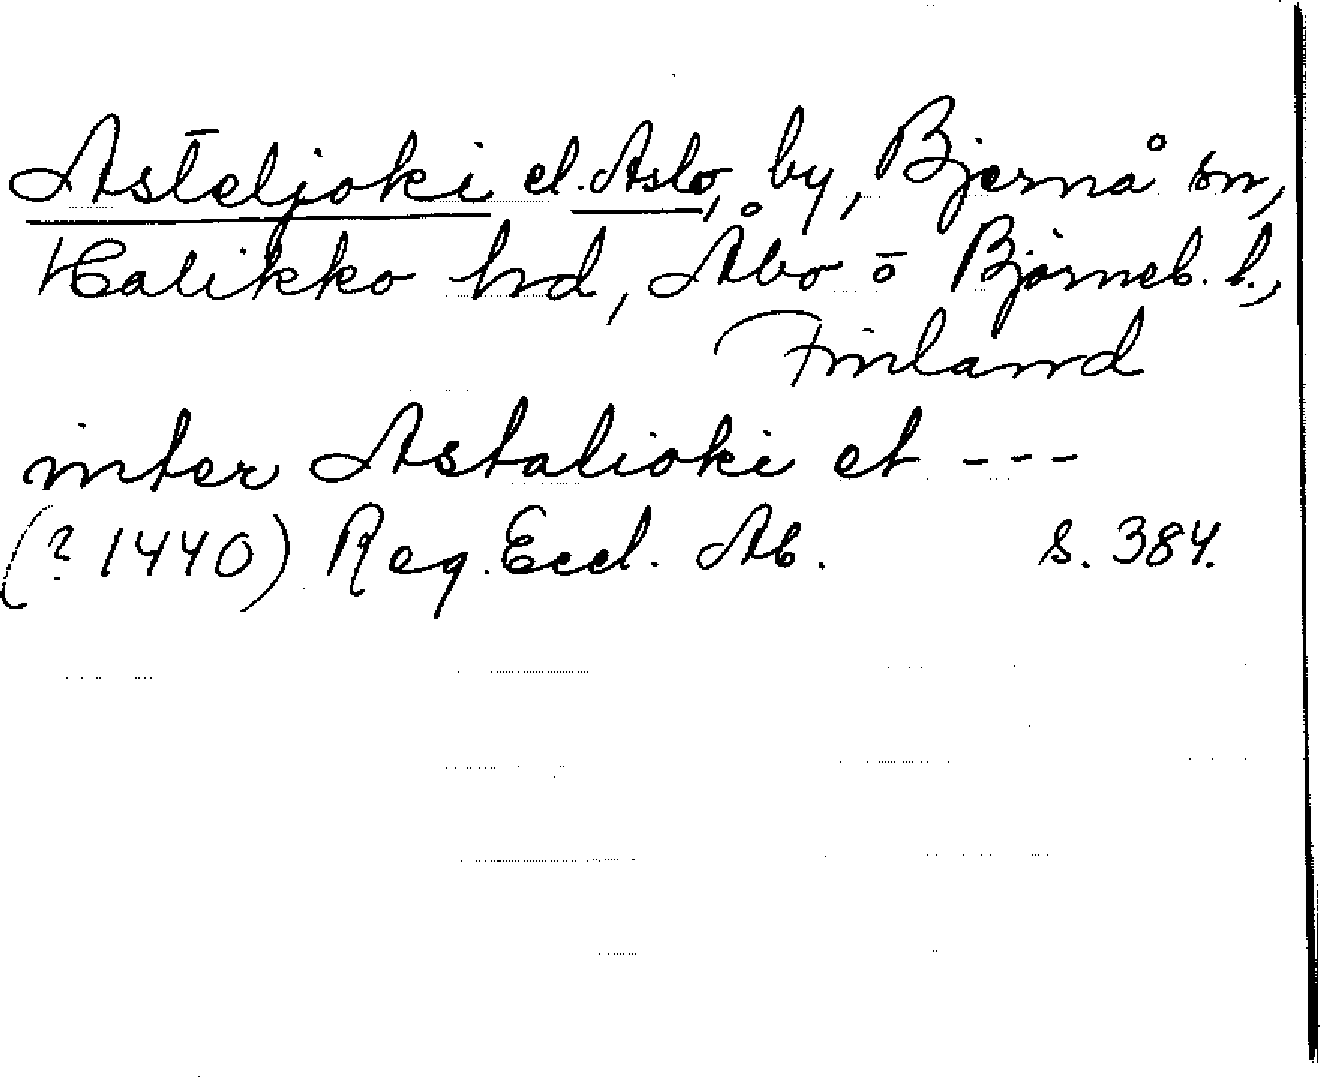 Asteljoki el. Aslo, by, Bjernå sn,
Halikko hd, Åbo o Björneb. l.,
Finland
inter Astalioki et ---
(? 1440) Reg. Eccl. Ab. S. 384.